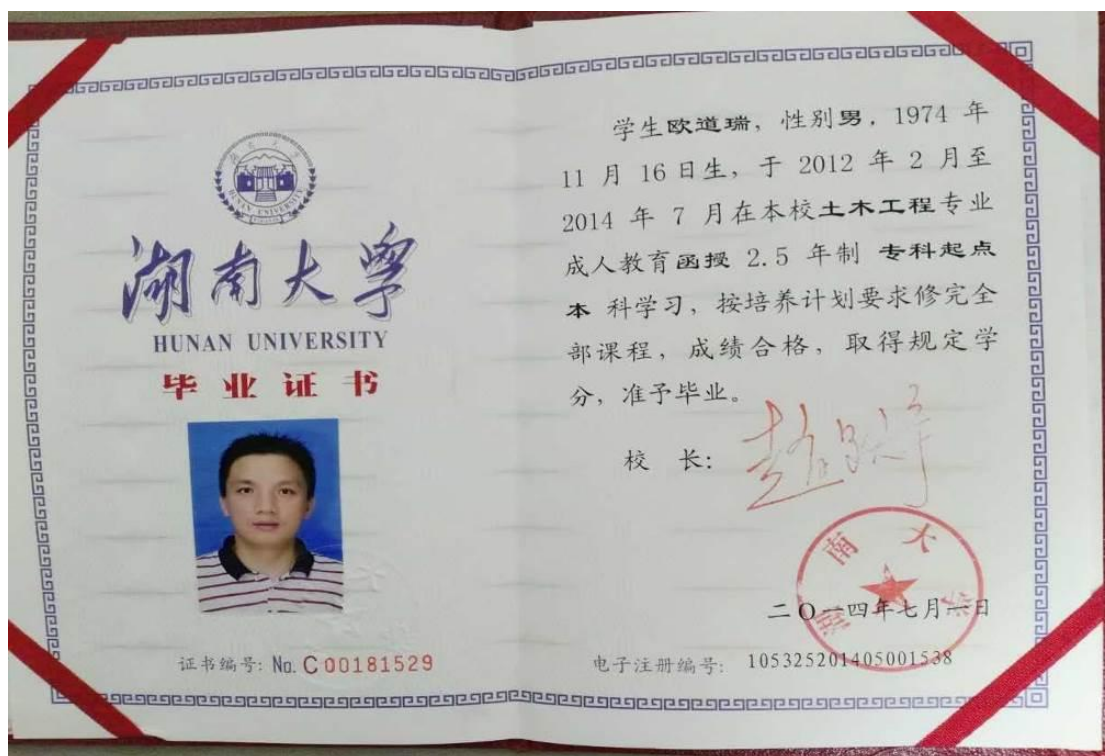 湖南大学
HUNAN UNIVERSITY
湖南大学
HUNAN UNIVERSITY
毕业证书
证书编号: No. C 00181529
学生欧道瑞, 性别男, 1974 年
11 月 16 日生, 于 2012 年 2 月至
2014 年 7 月在本校土木工程专业
成人教育函授 2.5 年制 专科起点
本 科学习, 按培养计划要求修完全
部课程, 成绩合格, 取得规定学
分, 准予毕业。
校 长:
湖南大学
二〇一四年七月一日
电子注册编号: 105325201405001538